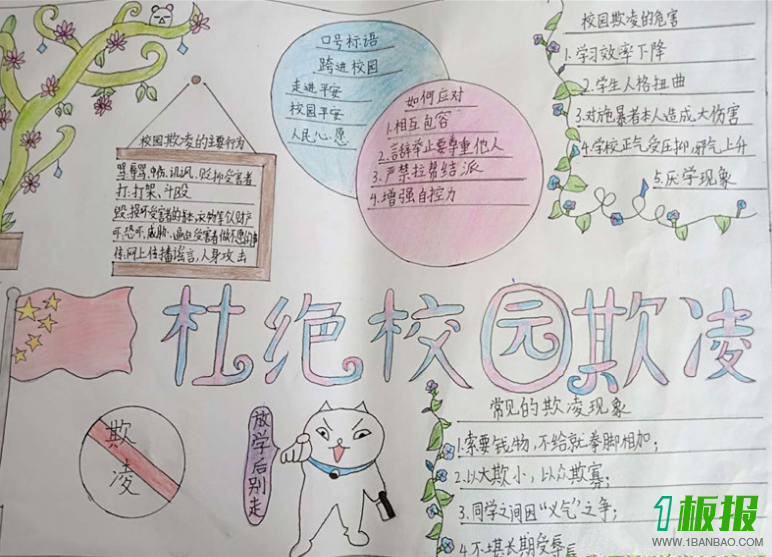 口号标语
跨进校园
走进平安
校园平安
人民心愿
如何应对
1.相互包容
2.言辞举止要尊重他人
3.严禁拉帮结派
4.增强自控力
校园欺凌的危害
1.学习效率下降
2.学生人格扭曲
3.对施暴者本人造成大伤害
4.学校正气受压抑,邪气上升
5.厌学现象
校园欺凌的主要行为
骂:辱骂,中伤,讥讽、贬抑受害者
打:打架、斗殴
毁:损坏受害者的书本,衣物等仪财产
吓:恐吓、威胁、逼迫受害者做不愿的事
传:网上传播谣言,人身攻击
杜绝校园欺凌
欺
凌
放学后别走
常见的欺凌现象
1.索要钱物,不给就拳脚相加;
2.以大欺小,以众欺寡;
3.同学之间因“义气”之争;
4.不堪长期受辱
1板报
WWW.1BANBAO.COM